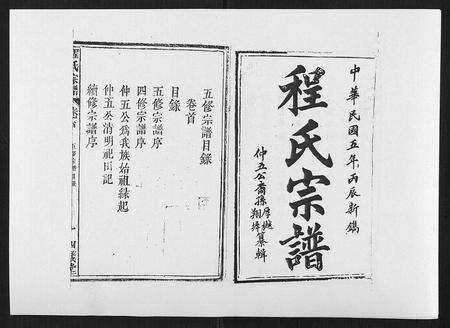 中華民國五年丙辰新鐫
程氏宗譜
仲五公裔孫
纂輯
五修宗譜目錄
卷首
目錄
五修宗譜序
四修宗譜序
仲五公爲我族始祖緣起
仲五公清明祀田記
續修宗譜序
程氏宗譜
五修宗譜目錄